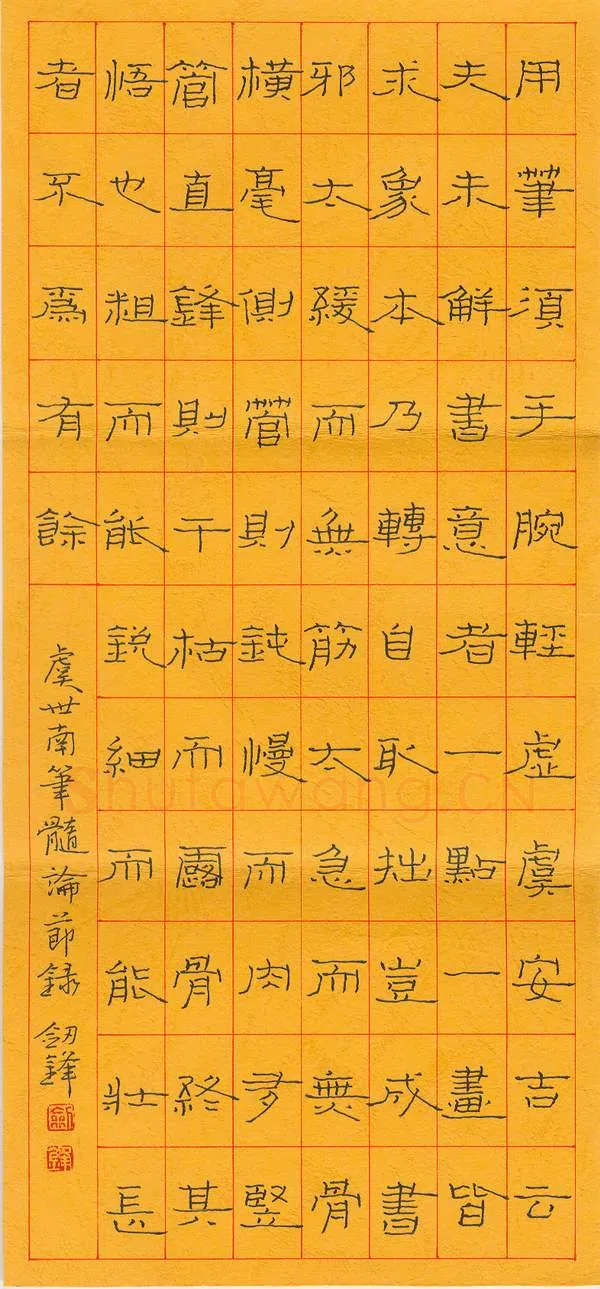 用筆須手腕輕虛虞安吉云
夫未解書意者一點一畫皆
求象本乃轉自取拙豈成書
邪太緩而無筋太急而無骨
橫毫側管則鈍慢而肉多豎
管直鋒則干枯而露骨終其
悟也粗而能銳細而能壯長
者不爲有餘
虞世南筆髓論節錄 劍鋒
劍鋒
Shufawang.CN